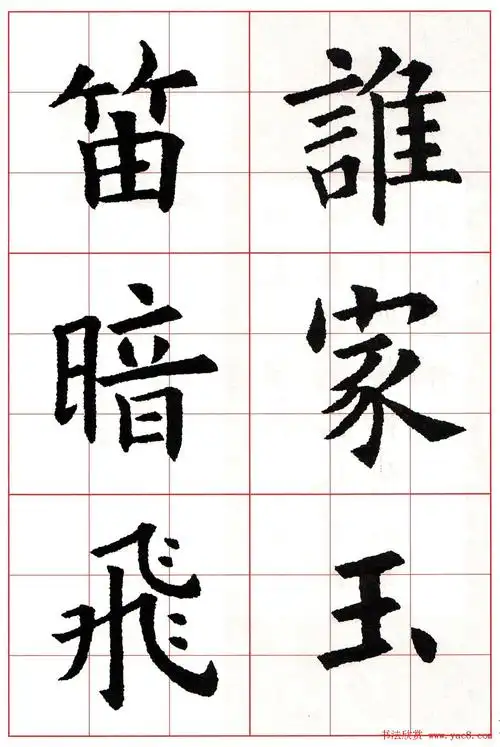 誰家玉
笛暗飛
书法欣赏 www.yac8.com